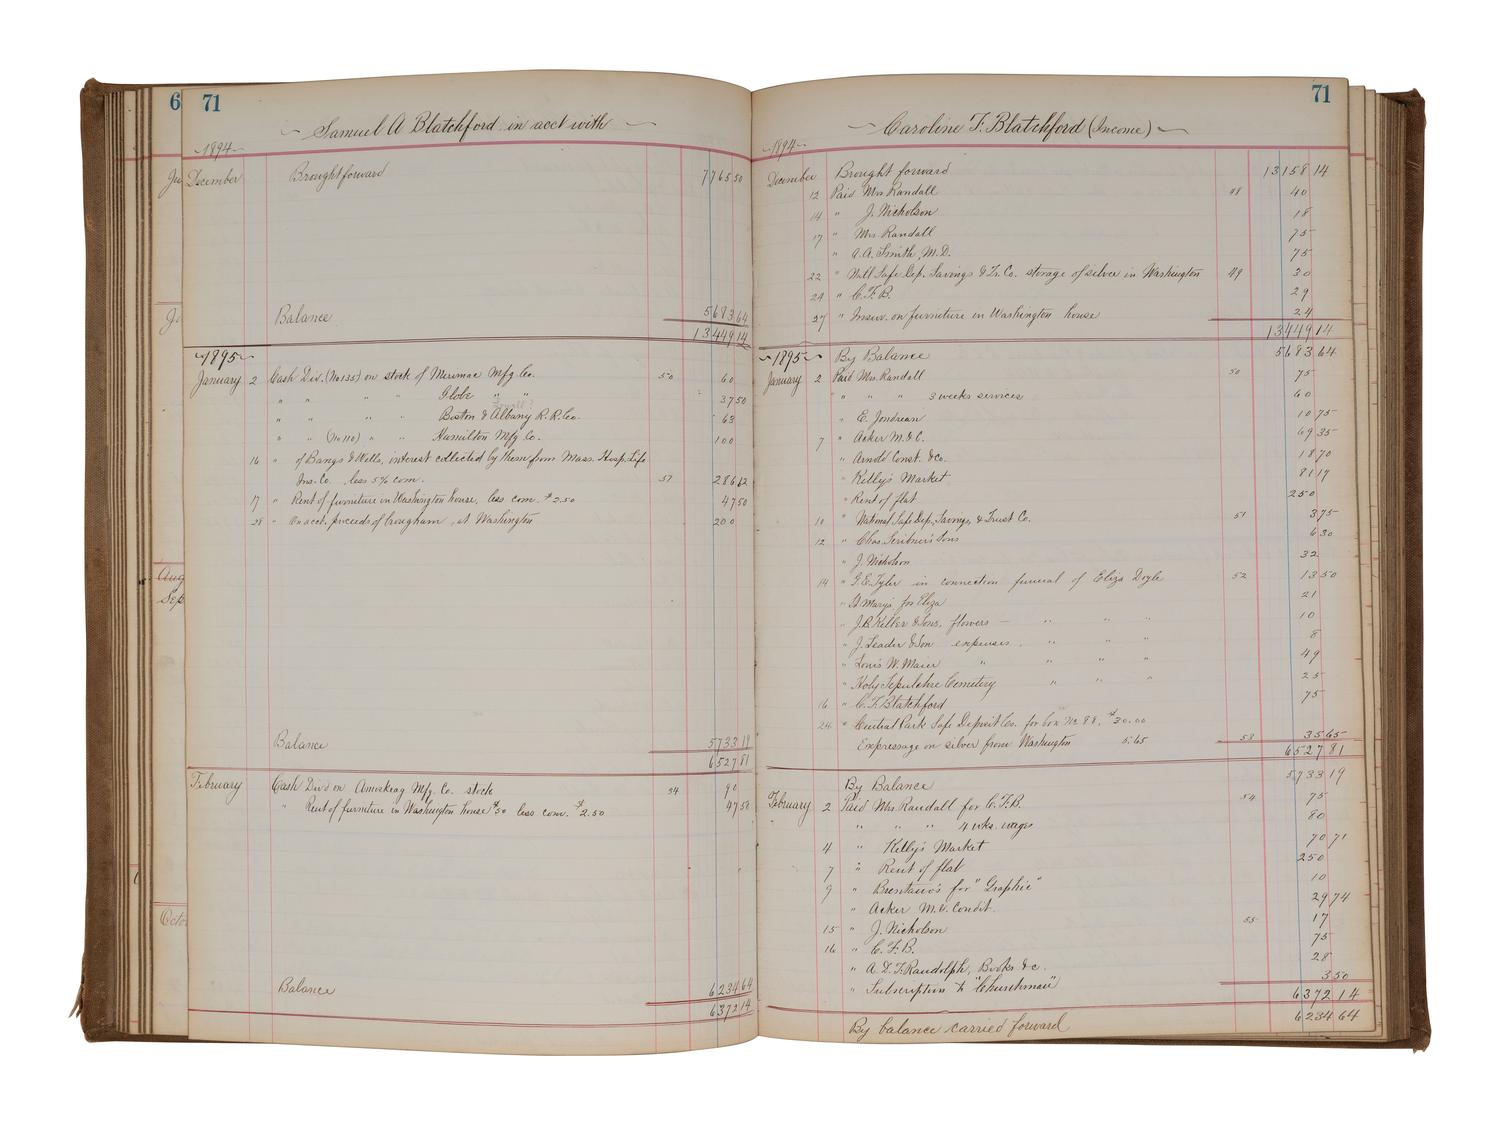 6
71
Samuel A Blatchford in acct with
1894
December Brought forward 7765 50
Balance 5683 64
13449 14
1895
January 2 Cash Div. (No 135) on stock of Merrimac Mfg Co. 50 60
" " " " Globe " " 37 50
" " " " Boston & Albany R.R. Co. 63
" " (No 110) " " Hamilton Mfg Co. 100
16 " of Bangs & Wells, interest collected by them from Mass. Hosp. Life
Ins. Co. less 5% com. 51 286 12
17 " Rent of furniture in Washington house, less com. $2.50 47 50
28 " On acct. proceeds of brougham, at Washington 200
Balance 5733 19
6527 81
February Cash Div on Amoskeag Mfg. Co. stock 54 90
" Rent of furniture in Washington house $50 less com. $2.50 47 50
Balance 6234 64
6372 14
Aug
Sep
71
Caroline F. Blatchford (Income)
1894
December Brought forward 13158 14
12 Paid Mrs Randall 48 40
14 " J. Nicholson 18
17 " Mrs. Randall 75
" A.A. Smith, M.D. 75
22 " Nat'l Safe Dep. Savings & Tr. Co. storage of silver in Washington 49 30
24 " C.F.B. 29
27 " Insur. on furniture in Washington house 24
13449 14
1895 By Balance 5683 64
January 2 Paid Mrs. Randall 50 75
" " " " 3 weeks services 60
" E. Jondrean 10 75
7 " Acker M. & C. 69 35
" Arnold Const. & Co. 18 70
" Kelly's Market 81 17
" Rent of flat 250
10 " National Safe Dep., Savings, & Trust Co. 51 3 75
12 " Chas. Scribner's Sons 6 30
" J. Nicholson 32
14 " G.E. Tyler in connection funeral of Eliza Doyle 52 13 50
" St Mary's for Eliza 21
" J.B. Keller & Sons, flowers — " " " 10
" J. Leader & Son expenses " " " 8
" Louis W. Maier " " " " 49
" Holy Sepulchre Cemetery " " " 25
16 " C.F. Blatchford 75
24 " Central Park Safe Deposit Co. for box No 88, $30.00
Expressage on silver from Washington 5.65 53 35 65
6527 81
By Balance 5733 19
February 2 Paid Mrs Randall for C.F.B. 54 75
" " " " 4 wks. wages 80
4 " Kelly's Market 70 71
7 " Rent of flat 250
9 " Brentano's for "Graphic" 10
" Acker M. & Condit. 29 74
15 " J. Nicholson 55 17
16 " C.F.B. 75
" A.D.F. Randolph, Books &c. 28
" Subscription to "Churchman" 3 50
6372 14
By balance carried forward 6234 64